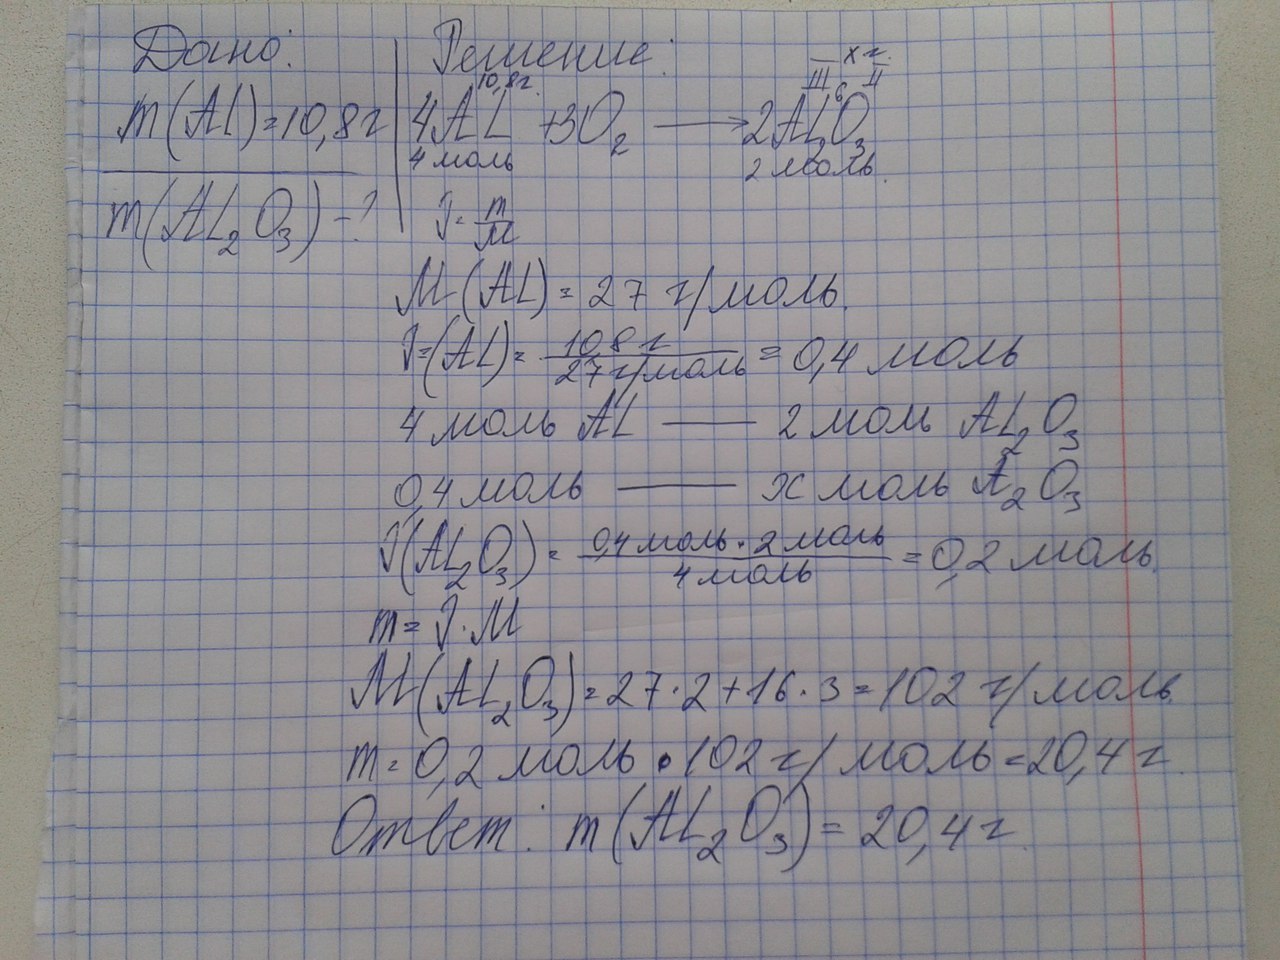 Дано:
m(Al)=10,8г
m(Al₂O₃)-?
Решение:
10,8г. x г.
III 6 II
4Al +3O₂ ⟶ 2Al₂O₃
4 моль 2 моль.
ν= m/M
M(Al)=27 г/моль.
ν=(Al)= 10,8 г/27 г/моль =0,4 моль
4 моль Al — 2 моль Al₂O₃
0,4 моль — x моль A₂O₃
ν(Al₂O₃)= 0,4 моль · 2 моль/4 моль =0,2 моль.
m= ν·M
M(Al₂O₃)=27·2+16·3=102 г/моль.
m=0,2 моль · 102 г/моль=20,4 г.
Ответ: m(Al₂O₃)=20,4г.